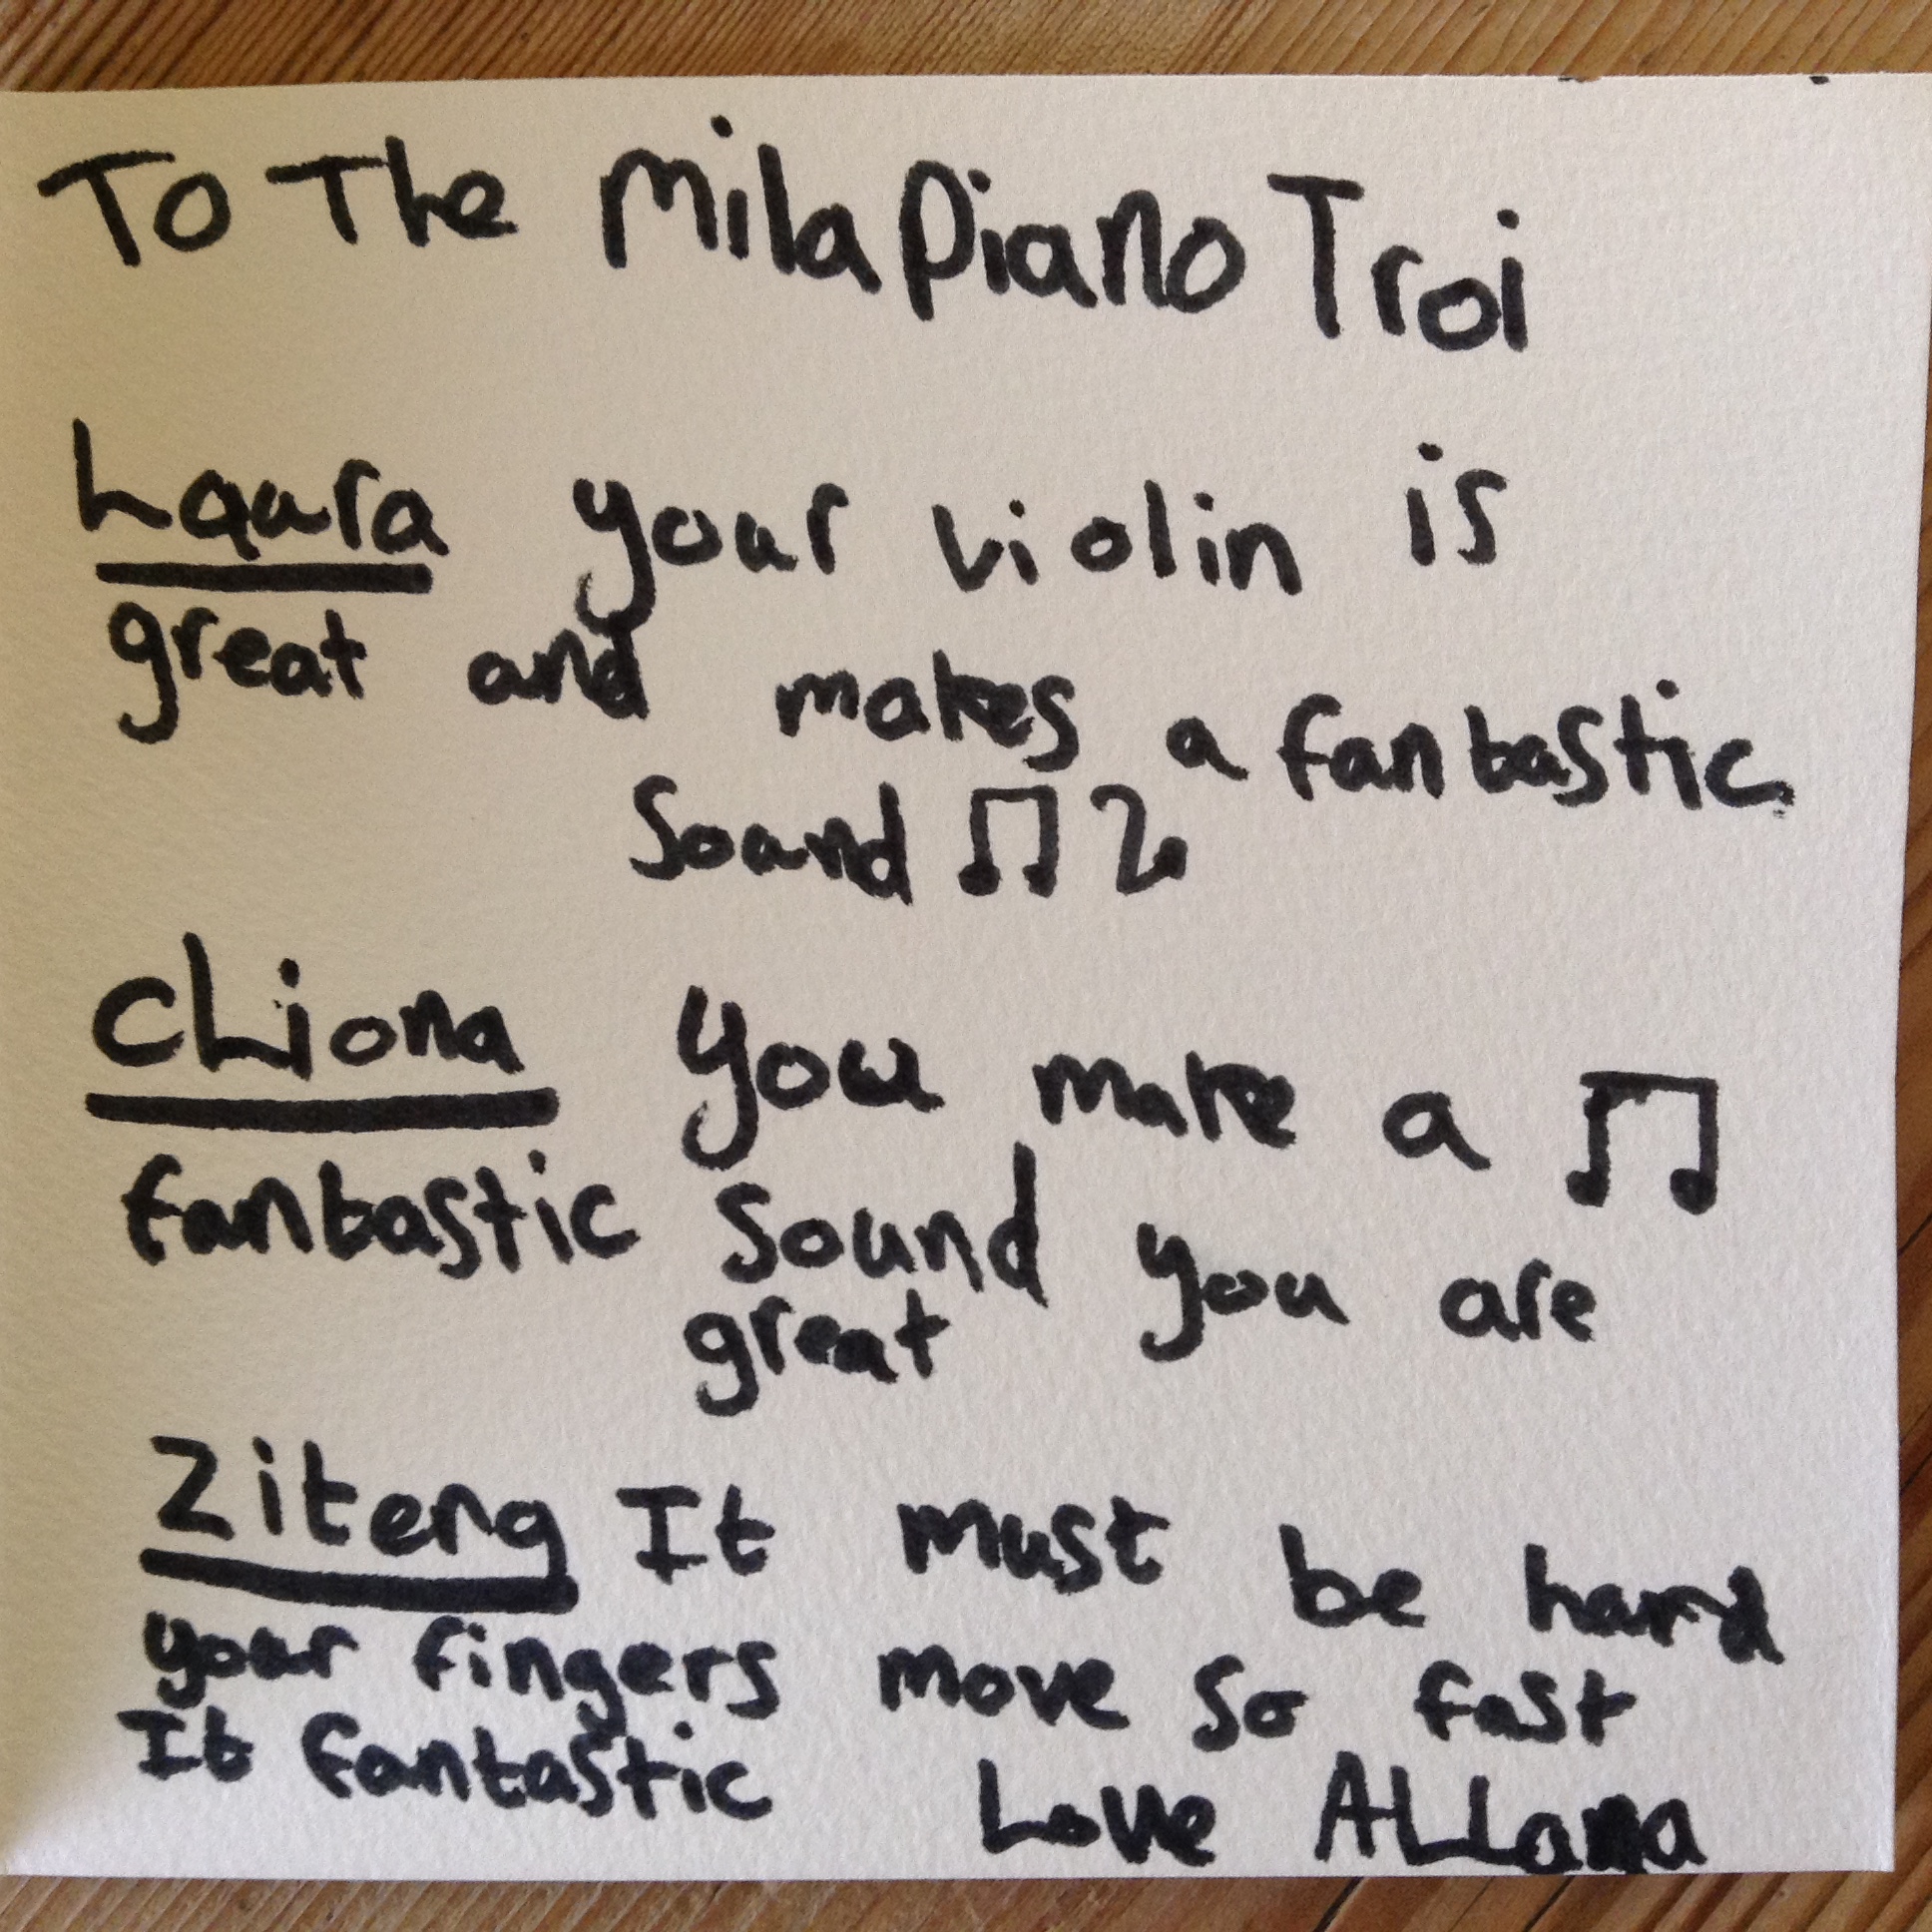 To The Mila Piano Troi
Laura your violin is
great and makes a fantastic
Sound
cLiona you make a
fantastic Sound you are
great
Ziteng It must be hard
your fingers move so fast
It fantastic Love ALLana